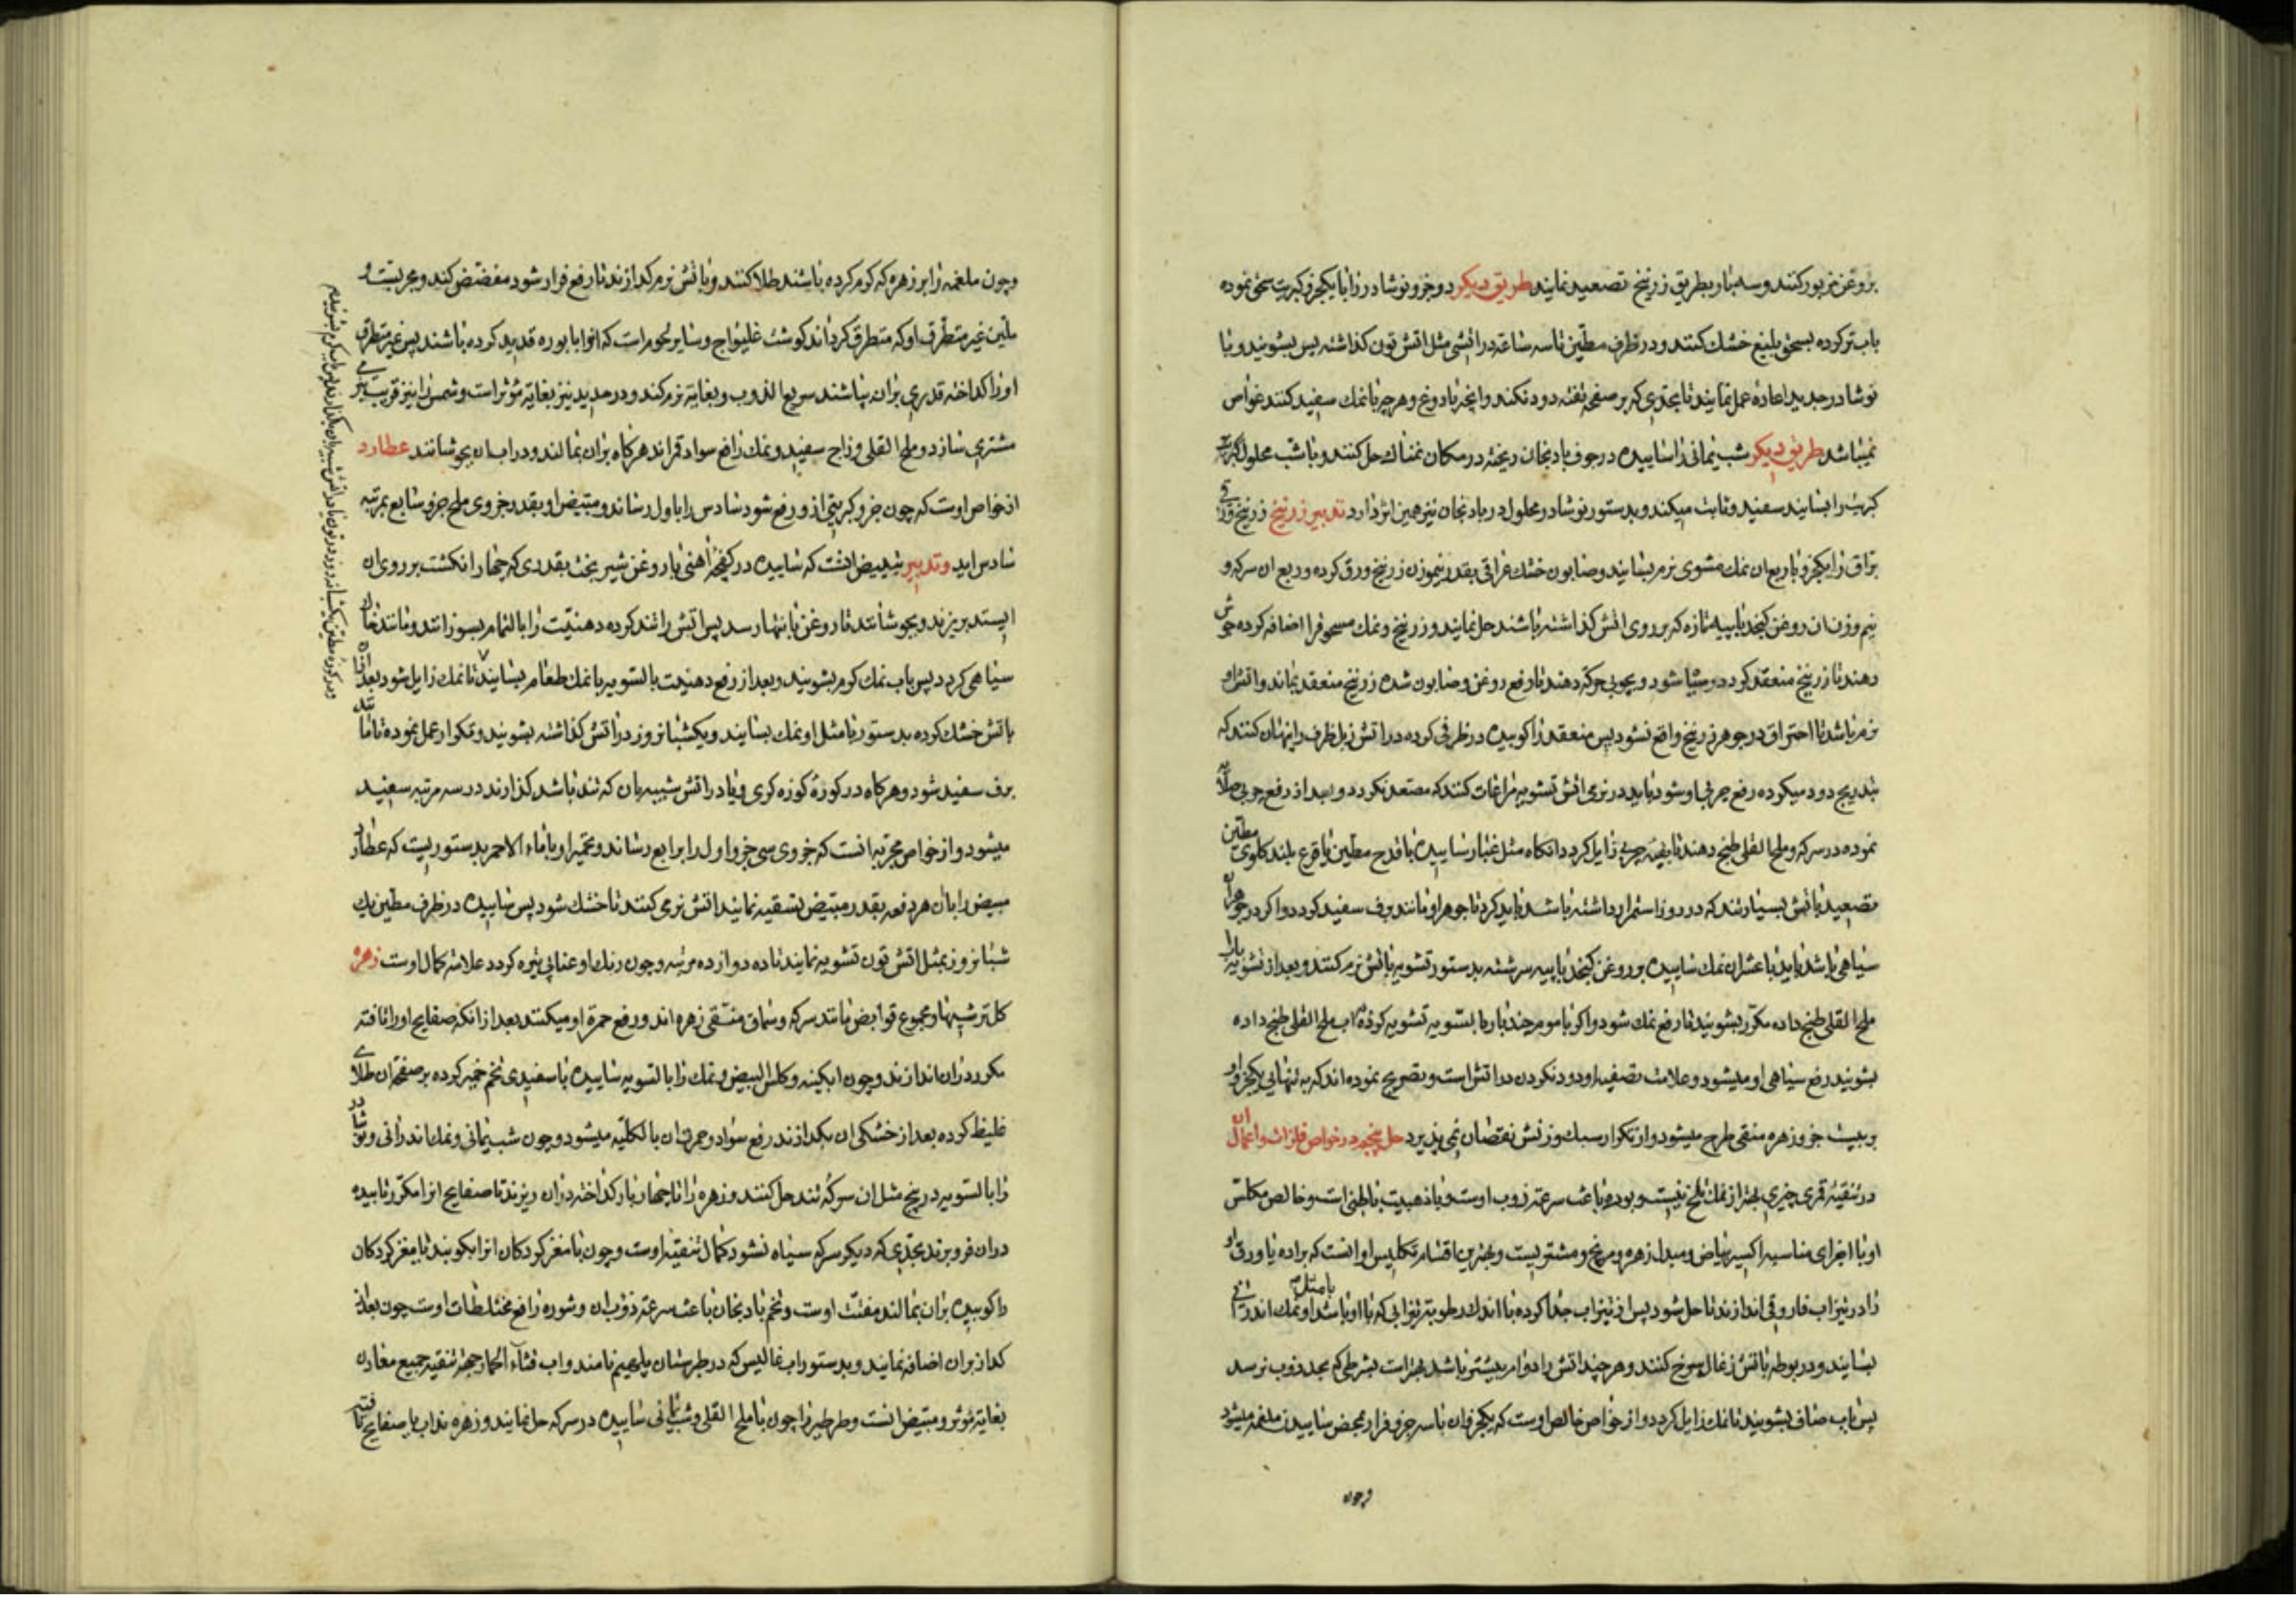 بروغن مزبور کنند و سه بار بطریق زرنیخ تصعید نمایند طریق دیکر دو جزو نوشادر را با یکجزو کبریت سحق نموده
باب تر کرده بسحق بلیغ خشك کنند و در ظرف مطین تا سه ساعة در اتشی مثل اتش تون کذاشته پس بشویند و با
نوشادر جدید اعاده عمل نمایند تا بحدی که بر صفحه تفته دود نکند و انچه با دوغ و هر چه با نمك سفید کنند غواص
نمیباشد طریق دیکر شب یمانی را ساییده در جوف بادنجان ریخته در مکان نمناك حل کنند و با شب محلول
کبریت را بسایند سفید و ثابت میکند و بدستور نوشادر محلول در بادنجان نیز همین اثر دارد تدبیر زرنیخ زرنیخ ورقی
براق را یکجزو با ربع ان نمك مشوی نرم بسایند و صابون خشك عراقی بقدر نیموزن زرنیخ ورق کرده و ربع ان سرکه و
نیم وزن ان روغن کنجد یا پیه تازه که بر روی اتش کذاشته باشند حل نمایند و زرنیخ و نمك مسحوق را اضافه کرده جوش
دهند تا زرنیخ منعقد کردد و سیا شود و بچوبی حرکة دهند تا رفع روغن و صابون شده زرنیخ منعقد بماند و اتش او
نرم باشد تا احتراق در جوهر زرنیخ واقع نشود پس منعقد را کوبیده در ظرفی کرده در اتش زبل ظرف را پنهان کنند که
بتدریج دود میکرده رفع چربی او شود باید در نرمی اتش تشویه مراعات کنند که مصعد نکردد و بعد از رفع چربی صلایه
نموده در سرکه و ملح القلی طبخ دهند تا بقیه چربی زایل کردد انکاه مثل غبار ساییده با قدح مطین یا قرع بلند کلوی مطین
تصعید باتش بسیار تند که در دو روز استمرار داشته باشد باید کرد تا جوهر او مانند برف سفید کردد و اکر در جوهر ان
سیاهی باشد باید با عشر ان نمك ساییده بروغن کنجد یا پیه سرشته بدستور تشویه باتش نرم کنند و بعد از تشویه باب
ملح القلی طبخ داده مکرر بشویند تا رفع نمك شود و اکر با موم چند بار بالتسویه تشویه کرده باب ملح القلی طبخ داده
بشویند رفع سیاهی او میشود و علامت تصفیه او دود نکردن در اتش است و تصریح نموده اند که به تنهایی یکجزو او
بر بیست جزو زهره منقی طرح میشود و از تکرار سبك وزنش نقصان نمی پذیرد حل پنجم در خواص فلزات و اعمال ان
در تنقیه قمری چیزی بهتر از نمك تلخ نیست و بوره باعث سرعة ذوب اوست و با ذهبیت باطنی است و خالص مکلس
او با اجزای مناسبه اکسیر بیاض و مبدل زهره و مریخ و مشتریست و بهترین اقسام تکلیس او انست که براده یا ورق او
را در تیزاب فاروقی اندازند تا حل شود پس از تیزاب جدا کرده با اندك رطوبة تیزابی که با او باشد با مثل او نمك اندرانی
بسایند و در بوطه باتش زغال سرخ کنند و هر چند اتش را دوام بیشتر باشد بهتر است بشرطی که بحد ذوب نرسد
پس باب صاف بشویند تا نمك زایل کردد و از خواص خالص اوست که یکجزو ان با سه جزو فرار بمحض ساییدن ملغمه میشود
چون
و چون ملغمه را بر زهره که کرم کرده باشند طلا کنند و باتش نرم کدازند تا رفع فرار شود مفضض کند و مجربست و
ملین غیر متطرق او که متطرق کرداند کوشت غلیواج و سایر لحوم است که انرا با بوره قدید کرده باشند پس غیر متطرق
او را کداخته قدری بران بپاشند سریع الذوب و بغایة نرم کند و در حدید نیز بغایة مؤثر است و شمس را نیز قریب
مشتری سازد و ملح القلی و زاج سفید و نمك رافع سواد قمر اند هرکاه بران بمالند و در اب ان بجوشانند عطارد
از خواص اوست که چون جزو کبریتی از و رفع شود سادس را باول رساند و مبیض او بقدر جزوی ملح جزو سابع بمرتبه
سادس اید و تدبیر تبییض انست که ساییده در کفچه اهنی با روغن شیر بخت بقدری که چهار انکشت بر روی ان
ایستد بریزند و بجوشانند تا روغن بانتها رسد پس اتش را تند کرده دهنیت را بالتمام بسوزانند و مانند خاك
سیاهی کردد پس باب نمك کرم بشویند و بعد از رفع دهنیت بالتسویه با نمك طعام بسایند تا نمك زایل شود بعد از ان
باتش خشك کرده بدستور با مثل او نمك بسایند و یکشبانروز در اتش کذاشته بشویند و تکرار عمل نموده تا مانند
برف سفید شود و هرکاه در کورهٔ کوزه کری و یا در اتش شبیه بان که تند باشد کذارند در سه مرتبه سفید
میشود و از خواص مجربه انست که جزوی سی جزو اول را برابع رساند و تحمیر او با ماء الاحمر بدستوریست که عطارد
مبیض را بان هر دفعه بقدر مبیض تسقیه نمایند اتش نرمی کنند تا خشك شود پس ساییده در ظرف مطین یك
شبانروز بمثل اتش تون تشویه نمایند تا ده دوازده مرتبه و چون رنك او عنابی تیره کردد علامة کمال اوست زهره
کل ترشیها و مجموع قوابض مانند سرکه و سماق منقی زهره اند و رفع حمرة او میکنند بعد از انکه صفایح او را تافته
مکرر دران اندازند و چون ابکینه و کلس البیض و نمك را بالتسویه ساییده با سفیدی تخم خمیر کرده بر صفحه ان طلای
غلیظ کرده بعد از خشکی ان بکدازند رفع سواد و حمرة ان بالکلیه میشود و چون شب یمانی و نمك اندرانی و نوشادر
را بالتسویه در پنج مثل ان سرکه تند حل کنند و زهره را تا چهار بار کداخته دران ریزند تا صفایح انرا مکرر تابیده
دران فرو برند بحدی که دیکر سرکه سیاه نشود کمال تنقیه اوست و چون با مغز کردکان انرا بکوبند تا مغز کردکان
را کوبیده بران بمالند مفتت اوست و تخم بادنجان باعث سرعة ذوب ان و شوره رافع مختلطات اوست چون بعد از
کداز بران اضافه نمایند و بدستور اب غالیس که در طبرستان نامند و اب قثاء الحمار جهة تنقیه جمیع معادن
بغایة مؤثر و مبیض انست و طرطیر را چون با ملح القلی و شب یمانی ساییده در سرکه حل نمایند و زهره مذاب یا صفایح تافته